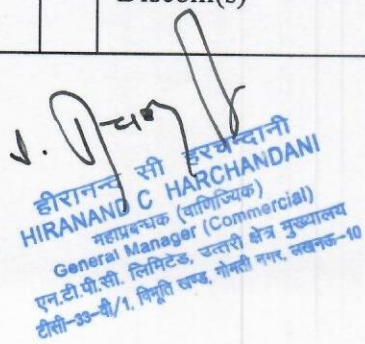 Discom(s)
हीरानन्द सी हरचन्दानी
HIRANAND C HARCHANDANI
महाप्रबन्धक (वाणिज्यिक)
General Manager (Commercial)
एन.टी.पी.सी. लिमिटेड, उत्तरी क्षेत्र मुख्यालय
टीसी-33-वी/1, विभूति खण्ड, गोमती नगर, लखनऊ-10